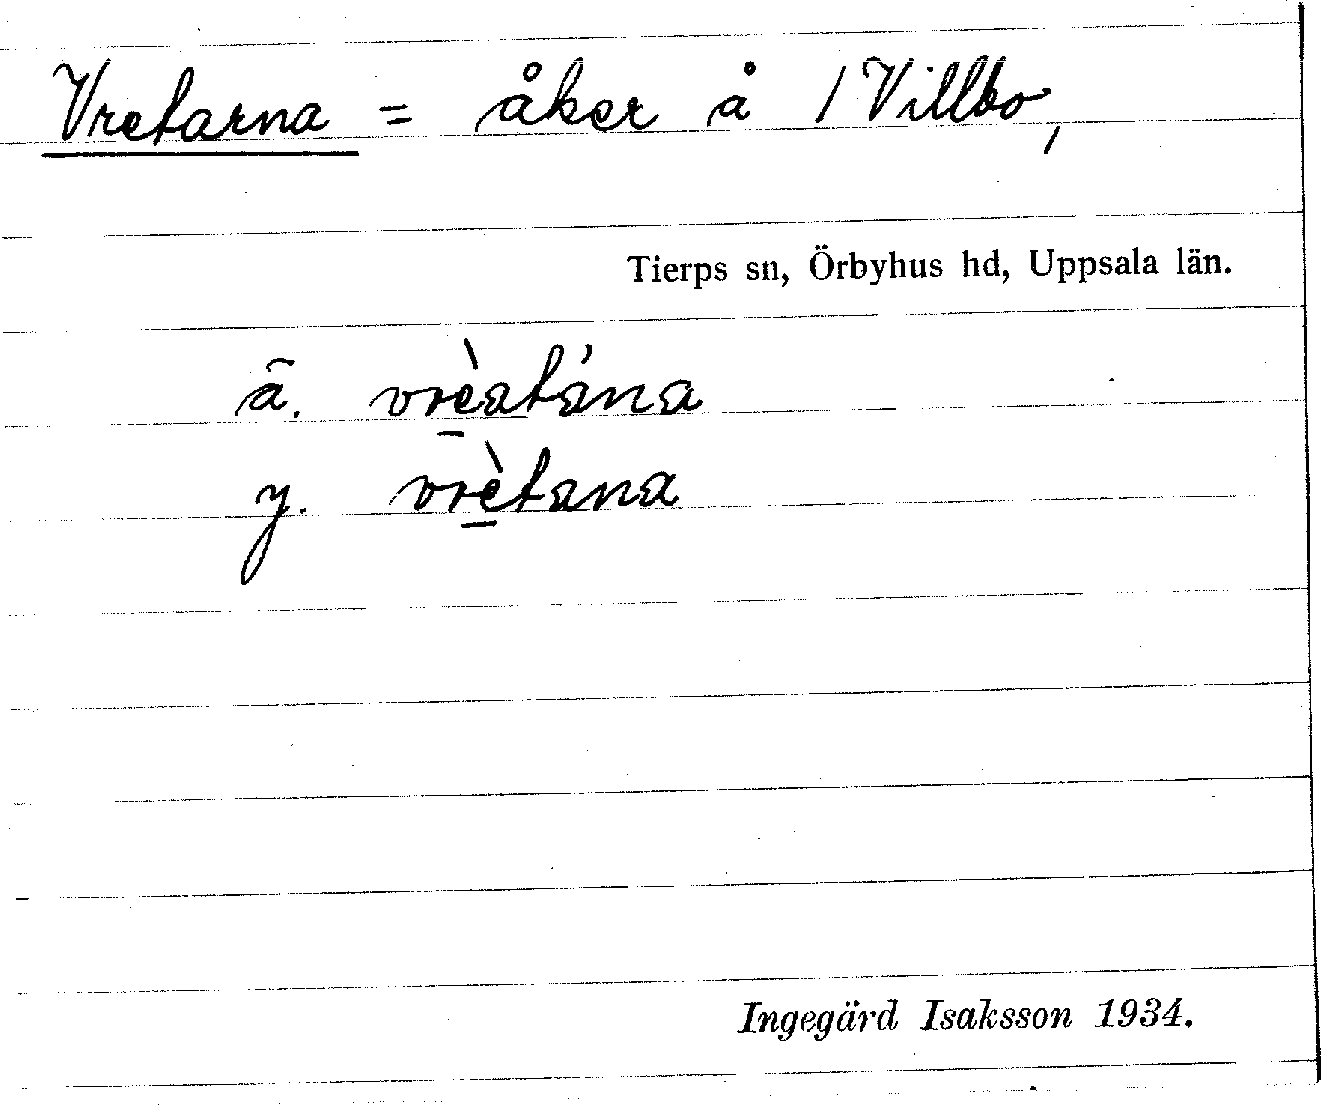 Vretarna = åker å / Villbo,
Tierps sn, Örbyhus hd, Uppsala län.
ä. vrèatána
y. vrètana
Ingegärd Isaksson 1934.